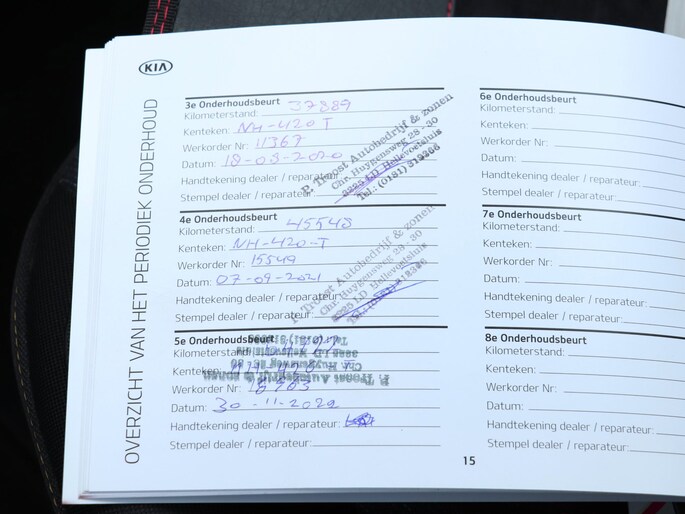 KIA
OVERZICHT VAN HET PERIODIEK ONDERHOUD
3e Onderhoudsbeurt
Kilometerstand: 37889
Kenteken: NH-420 T
Werkorder Nr: 11367
Datum: 18-05-2020
Handtekening dealer / reparateur:
Stempel dealer / reparateur:
P. Troost Autobedrijf & zonen
Chr. Huygensweg 28 - 30
3225 LD Hellevoetsluis
Tel.: (0181) 312366
4e Onderhoudsbeurt
Kilometerstand: 45548
Kenteken: NH-420-T
Werkorder Nr: 15549
Datum: 07-09-2021
Handtekening dealer / reparateur:
Stempel dealer / reparateur:
P. Troost Autobedrijf & zonen
Chr. Huygensweg 28 - 30
3225 LD Hellevoetsluis
5e Onderhoudsbeurt
Kilometerstand:
Kenteken:
Werkorder Nr:
Datum: 30-11-2022
Handtekening dealer / reparateur:
Stempel dealer / reparateur:
6e Onderhoudsbeurt
Kilometerstand:
Kenteken:
Werkorder Nr:
Datum:
Handtekening dealer / reparateur:
Stempel dealer / reparateur:
7e Onderhoudsbeurt
Kilometerstand:
Kenteken:
Werkorder Nr:
Datum:
Handtekening dealer / reparateur:
Stempel dealer / reparateur:
8e Onderhoudsbeurt
Kilometerstand:
Kenteken:
Werkorder Nr:
Datum:
Handtekening dealer / reparateur:
Stempel dealer / reparateur:
15